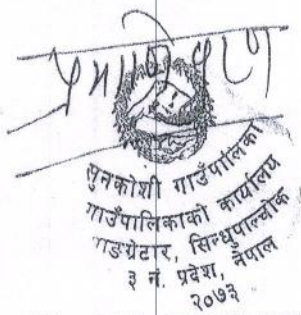 प्रमाणिकरण
सुनकोशी गाउँपालिका
गाउँपालिकाको कार्यालय
पाङग्रेटार, सिन्धुपाल्चोक
३ नं. प्रदेश, नेपाल
२०७३